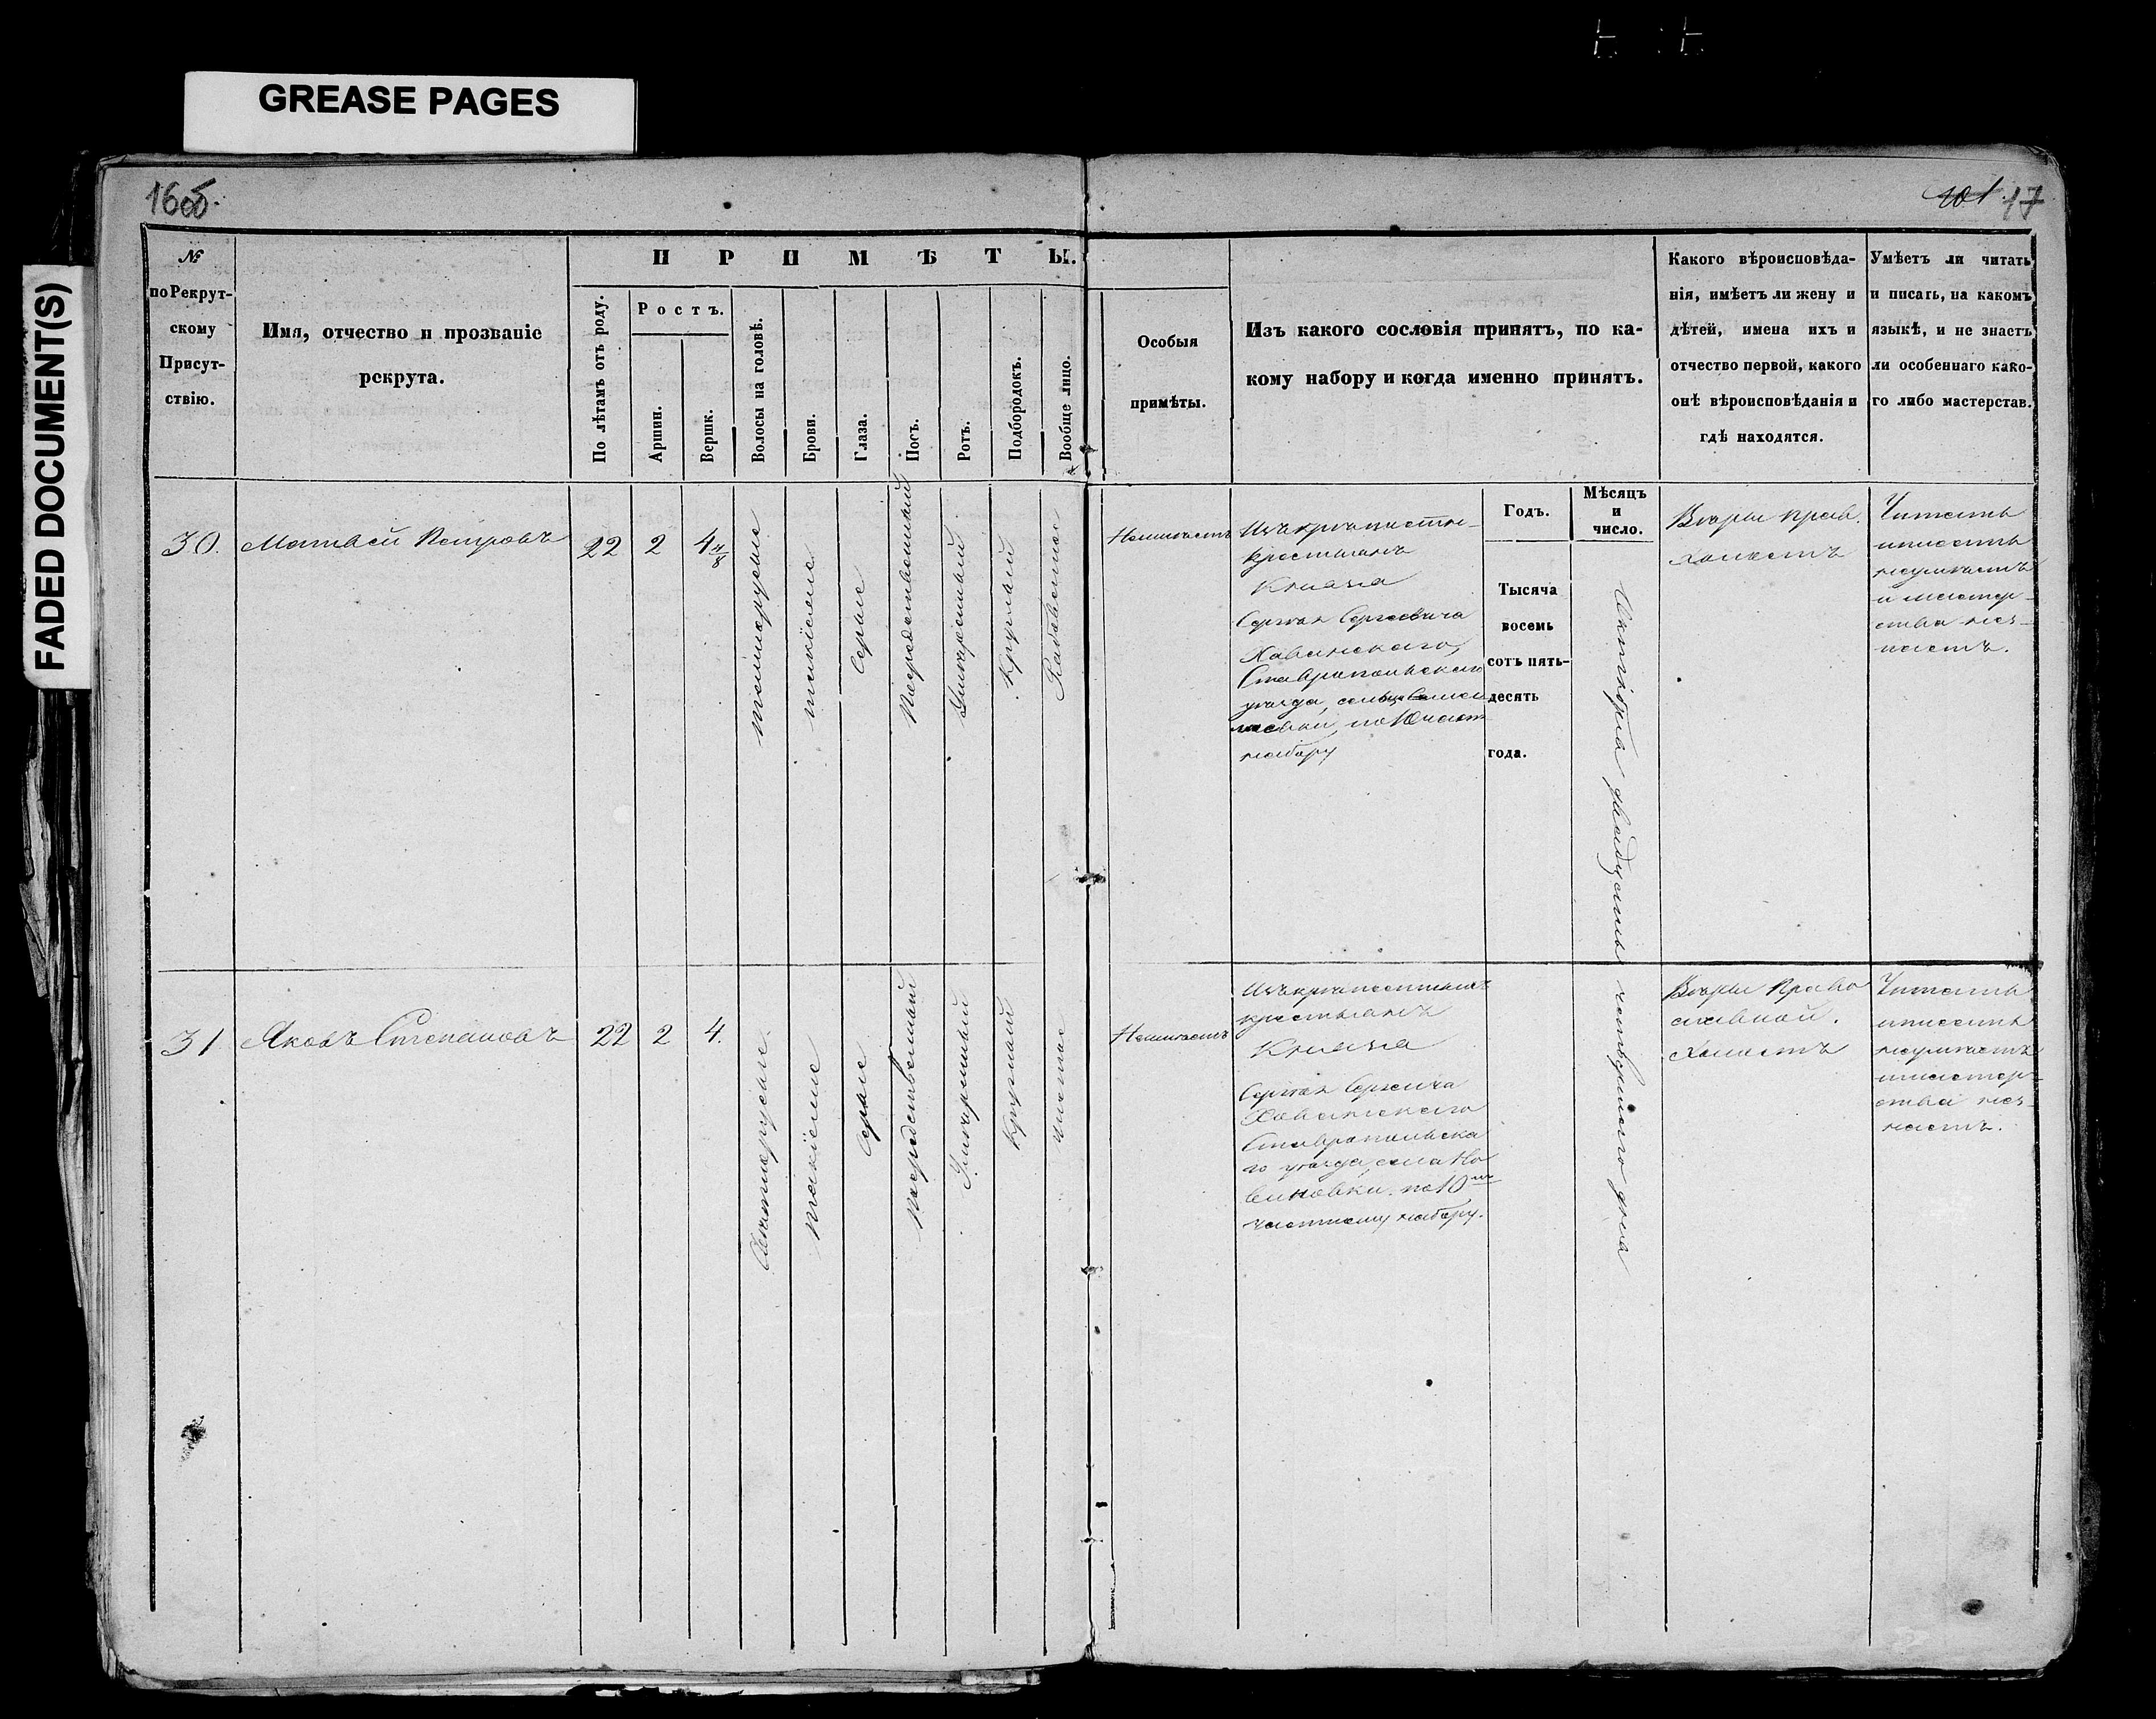 GREASE PAGES
FADED DOCUMENT(S)
16об.
101. 17
№
по Рекрут-
скому
Присут-
ствію.
Имя, отчество и прозваніе
рекрута.
ПРИМѢТЫ.
По лѣтамъ отъ роду.
Ростъ.
Аршин.
Вершк.
Волосы на головѣ.
Брови.
Глаза.
Носъ.
Ротъ.
Подбородокъ.
Вообще лицо.
Особыя
примѣты.
Изъ какого сословія принятъ, по ка-
кому набору и когда именно принятъ.
Какого вѣроисповѣда-
нія, имѣетъ ли жену и
дѣтей, имена ихъ и
отчество первой, какого
онѣ вѣроисповѣданія и
гдѣ находятся.
Умѣетъ ли читать
и писать, на какомъ
языкѣ, и не знаетъ
ли особеннаго како-
го либо мастерства.
30.
Матвей Петровъ
22
2
4 4/8
темнорусые
такіеже
Серые
Посредственный
Умѣренный
Круглый
Рябоватое
Неимѣетъ
Изъ крѣпостн-
крестьянъ
Князя
Сергѣя Сергѣевича
Хованскаго,
Ставропольскаго
уѣзда,
набору
Годъ.
Тысяча
восемь
сотъ пять-
десять
года.
Мѣсяцъ
и
число.
Октября двадцать четвертаго дня
Вѣры прав.
Холостъ
Читать
писать
неумѣетъ
и мастер-
ства нез-
наетъ.
31
Яковъ Степановъ
22
2
4.
Светлорусые
такіеже
Серые
Посредственный
Умѣренный
Круглый
чистое
Неимѣетъ
Изъ крѣпостныхъ
крестьянъ
Князя
Сергѣя Сергѣича
Хованскаго
Ставропольска
го уѣзда, села Но
виковки. по 10му
частному набору.
Вѣры Право
славной.
Холостъ
Читать
писать
неумѣетъ
имастер-
ства нез-
наетъ.